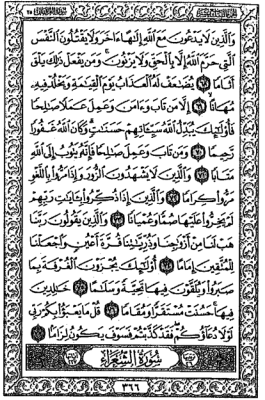 وَالَّذِينَ لَا يَدْعُونَ مَعَ اللَّهِ إِلَٰهًا ءَاخَرَ وَلَا يَقْتُلُونَ النَّفْسَ
الَّتِي حَرَّمَ اللَّهُ إِلَّا بِالْحَقِّ وَلَا يَزْنُونَ ۚ وَمَن يَفْعَلْ ذَٰلِكَ يَلْقَ
أَثَامًا ٦٨ يُضَٰعَفْ لَهُ الْعَذَابُ يَوْمَ الْقِيَٰمَةِ وَيَخْلُدْ فِيهِ
مُهَانًا ٦٩ إِلَّا مَن تَابَ وَءَامَنَ وَعَمِلَ عَمَلًا صَٰلِحًا
فَأُولَٰئِكَ يُبَدِّلُ اللَّهُ سَيِّـَٔاتِهِمْ حَسَنَٰتٍ ۗ وَكَانَ اللَّهُ غَفُورًا
رَّحِيمًا ٧٠ وَمَن تَابَ وَعَمِلَ صَٰلِحًا فَإِنَّهُ يَتُوبُ إِلَى اللَّهِ
مَتَابًا ٧١ وَالَّذِينَ لَا يَشْهَدُونَ الزُّورَ وَإِذَا مَرُّوا بِاللَّغْوِ
مَرُّوا كِرَامًا ٧٢ وَالَّذِينَ إِذَا ذُكِّرُوا بِـَٔايَٰتِ رَبِّهِمْ
لَمْ يَخِرُّوا عَلَيْهَا صُمًّا وَعُمْيَانًا ٧٣ وَالَّذِينَ يَقُولُونَ رَبَّنَا
هَبْ لَنَا مِنْ أَزْوَٰجِنَا وَذُرِّيَّٰتِنَا قُرَّةَ أَعْيُنٍ وَاجْعَلْنَا
لِلْمُتَّقِينَ إِمَامًا ٧٤ أُولَٰئِكَ يُجْزَوْنَ الْغُرْفَةَ بِمَا
صَبَرُوا وَيُلَقَّوْنَ فِيهَا تَحِيَّةً وَسَلَٰمًا ٧٥ خَٰلِدِينَ
فِيهَا ۚ حَسُنَتْ مُسْتَقَرًّا وَمُقَامًا ٧٦ قُلْ مَا يَعْبَؤُا بِكُمْ رَبِّي
لَوْلَا دُعَاؤُكُمْ ۖ فَقَدْ كَذَّبْتُمْ فَسَوْفَ يَكُونُ لِزَامًا ٧٧
سُورَةُ الشُّعَرَاءِ
٣٦٦